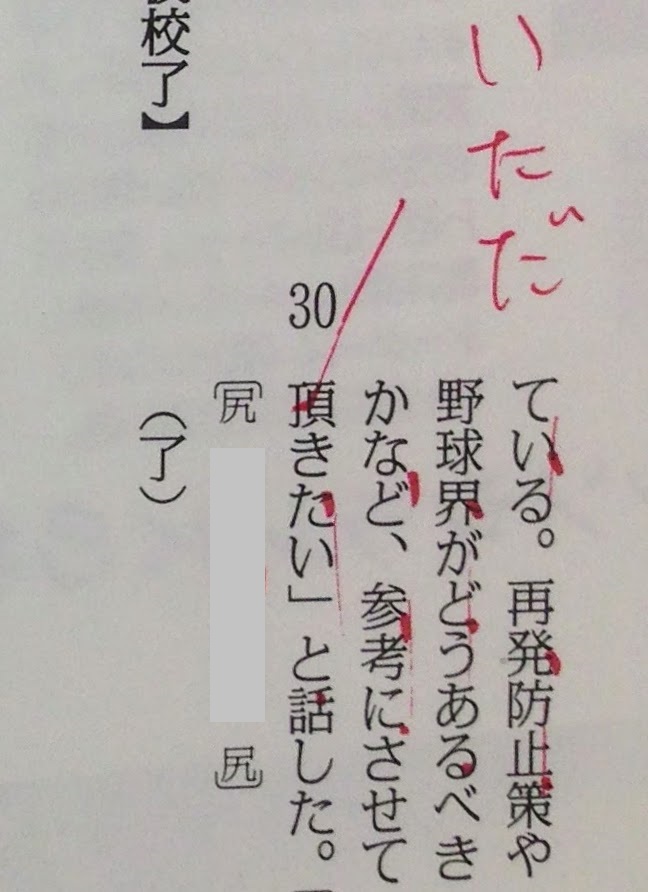 いただ
ている。再発防止策や
野球界がどうあるべき
かなど、参考にさせて
30
頂きたい」と話した。
〔尻
尻〕
(了)
校了】